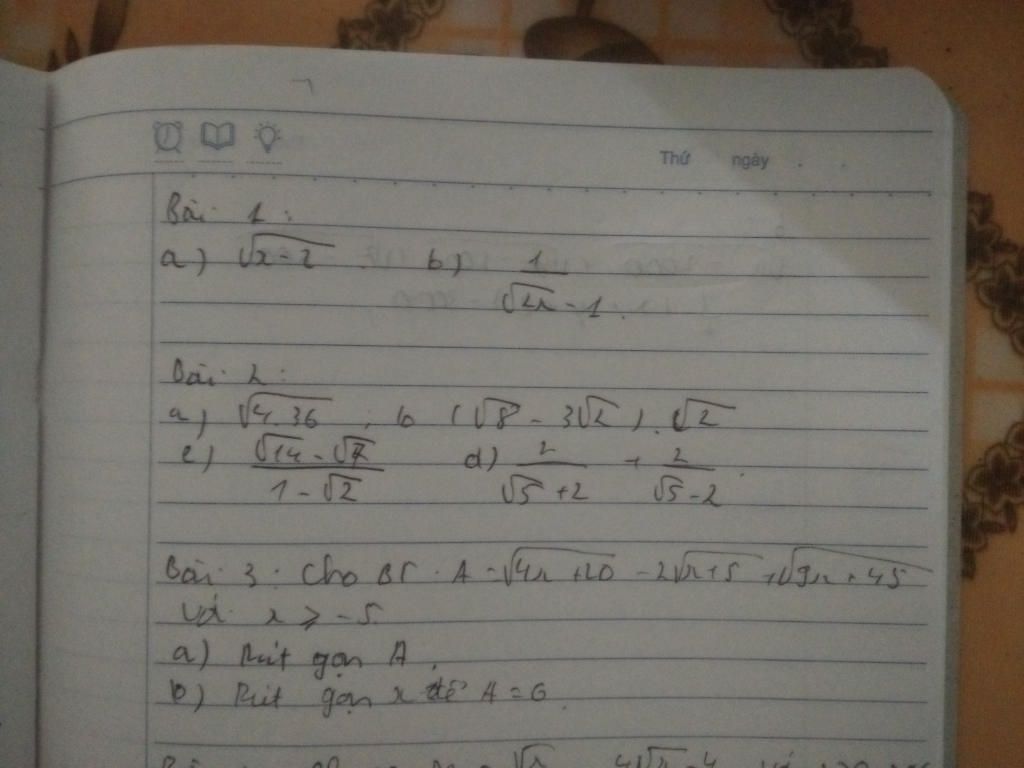 Thứ ngày
Bài 1:
a) √x-2 b) 1/(√2x - 1)
Bài 2:
a) √4.36 ; b (√8 - 3√2) . √2
c) (√14 - √7)/(1 - √2) d) 2/(√5 + 2) + 2/(√5 - 2)
Bài 3: Cho BT. A = √4x + 20 - 2√x + 5 + √9x + 45
với x ≥ -5
a) Rút gọn A.
b) Rút gọn x để A = 6